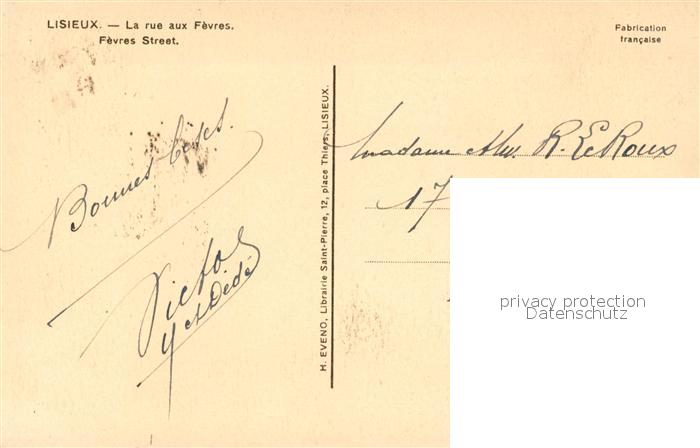 LISIEUX. — La rue aux Fèvres.
Fèvres Street.
Fabrication
française
Bonnes fêtes.
Victor
et Dédé
H. EVENO, Librairie Saint-Pierre, 12, place Thiers, LISIEUX.
Madame R. LeRoux
17
privacy protection
Datenschutz